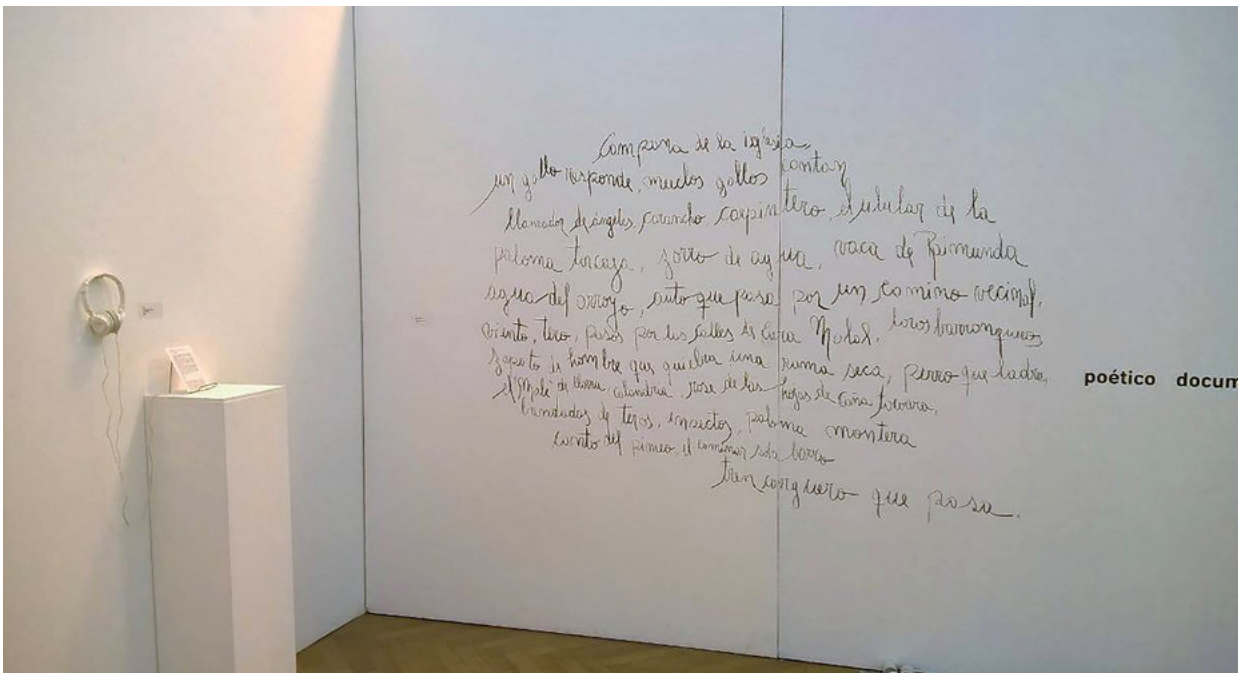 Campana de la iglesia,
un gallo responde, muchos gallos cantan
llamador de ángeles, carancho, carpintero, el ulular de la
paloma torcaza, zorro de agua, vaca de Raimunda
agua del arroyo, auto que pasa por un camino vecinal,
viento, tero, pasos por las calles de Natal, loros barranqueros
zapato de hombre que quiebra una rama seca, perro que ladra,
el de lluvia calandria roce de las hojas de caña
bandadas de teros, insectos, paloma montera
canto del el caminar barro
tren carguero que pasa.
poético docum